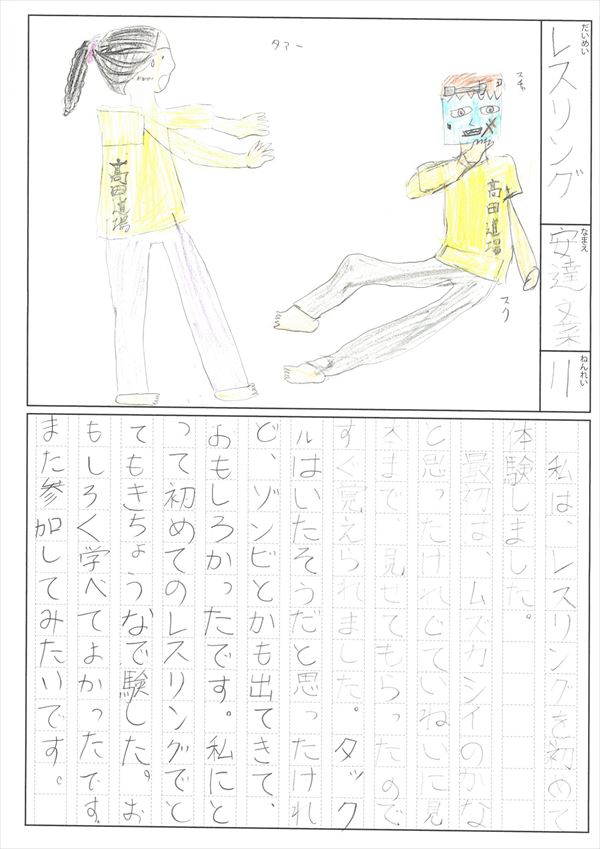 だいめい
レスリング
なまえ
安達文菜
ねんれい
11
スチャ
高田道場
スク
高田道場
私は、レスリングを初めて
体験しました。
最初は、ムズカシイのかな
と思ったけれどていねいに見
本まで見せてもらったので
すぐ覚えられました。タック
ルはいたそうだと思ったけれ
ど、ゾンビとかも出てきて、
おもしろかったです。私にと
って初めてのレスリングでと
てもきちょうなで験した。お
もしろく学べてよかったです。
また参加してみたいです。